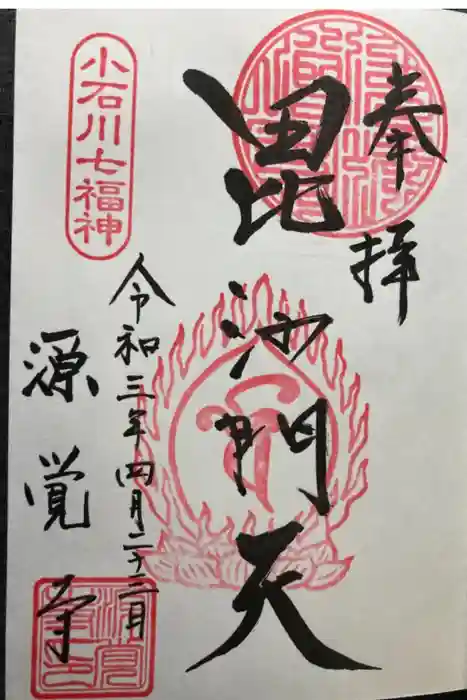 奉拝
毘沙門天
令和三年四月二十三日
小石川七福神
源覚寺